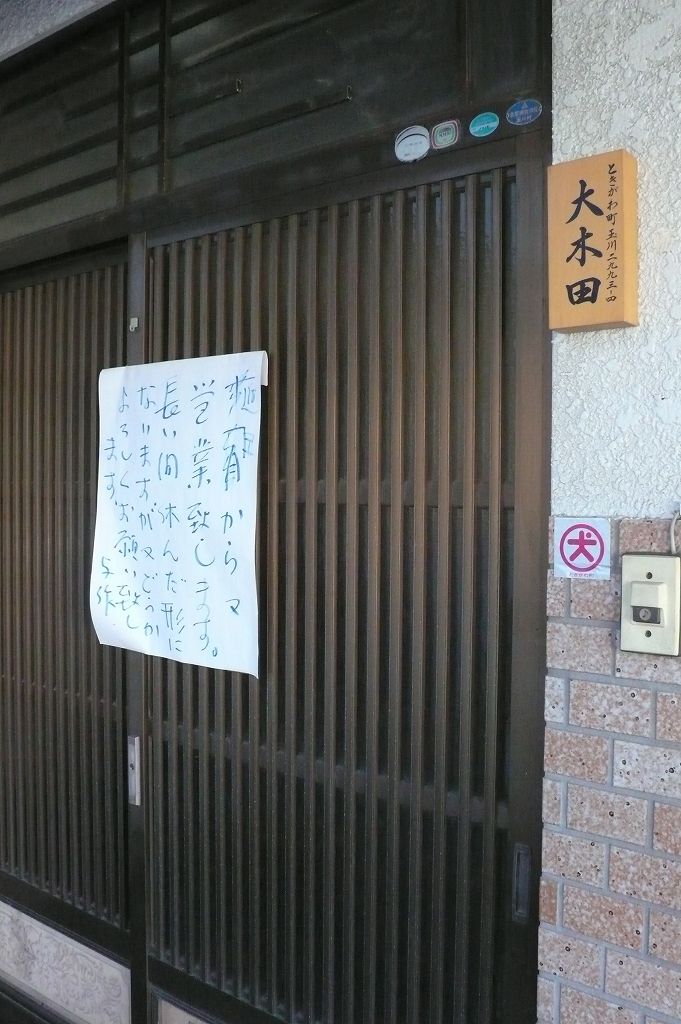 ときがわ町玉川二九九三-四
大木田
犬
から又
営業致します。
長い間休んだ形に
なりますが又どうか
よろしくお願い致し
ます。